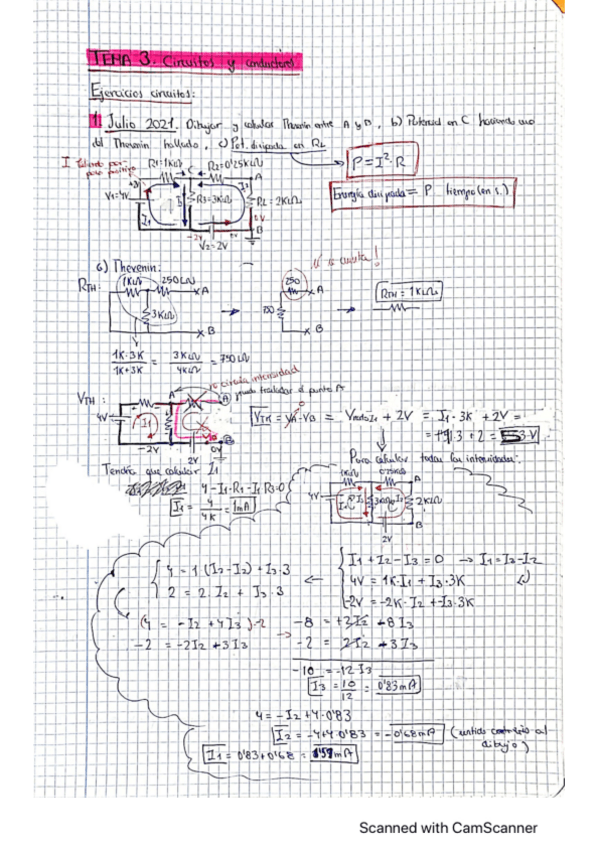 TEMA 3. Circuitos y conductores
Ejercicios circuitos:
1. Julio 2021. Dibujar y calcular Thevenin entre A y B, b) Potencial en C haciendo uso
del Thevenin hallado, c) Pot. disipada en RL
P = I²·R
Energía disipada = P · tiempo (en s.)
R1=1KΩ
C
R2=0'25KΩ
A
V1=4V
I1
R3=3KΩ
RL=2KΩ
B
V2=2V
Thevenin:
RTH:
1KΩ
250Ω
A
3KΩ
B
250
A
750
B
RTH = 1KΩ
1K·3K / 1K+3K = 3KΩ / 4KΩ = 750Ω
no circula intensidad
puedo trasladar el punto A
VTH:
4V
I1
-2V
2V
0V
A
B
VTH = VA-VB = + 2V = I1·3K + 2V =
Tendría que calcular I1
4-I1·R1-I1·R3=0
I1 = 4 / 4K = 1mA
Para calcular todas las intensidades
1KΩ
4V
2KΩ
A
B
2V
4 = 1(I3-I2)+I3·3
2 = 2·I2 + I3·3
I1+I2-I3=0 → I1=I3-I2
4V = 1K·I1 + I3·3K
-2V = -2K·I2 + I3·3K
(4 = -I2 + 4I3)·-2
-2 = -2I2 + 3I3
-8 = +2I2 -8I3
-2 = -2I2 +3I3
-10 = -12 I3
I3 = 10/12 = 0'83mA
4 = -I2+4·0'83
I2 = -4+4·0'83 = -0'68mA (sentido contrario al
dibujo)
I1 = 0'83+0'68 =
Scanned with CamScanner